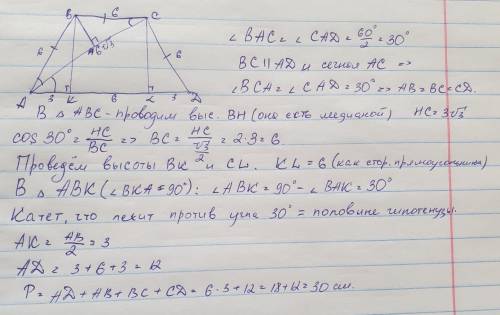 B 6 C
∠BAC = ∠CAD = 60°/2 = 30°
6 6√3 6
BC ∥ AD и секная AC =>
∠BCA = ∠CAD = 30° => AB = BC = CD.
A 3 K 6 L 3 D
В △ ABC - проводим выс. BH (она есть медианой) HC = 3√3
cos 30° = HC/BC => BC = HC/(√3/2) = 2·3 = 6.
Проведём высоты BK и CL. KL = 6 (как стор. прямоугольника)
В △ ABK (∠BKA = 90°): ∠ABK = 90° - ∠BAK = 30°
Катет, что лежит против угла 30° = половине гипотенузы.
AK = AB/2 = 3
AD = 3 + 6 + 3 = 12
P = AD + AB + BC + CD = 6·3 + 12 = 18 + 12 = 30 см.